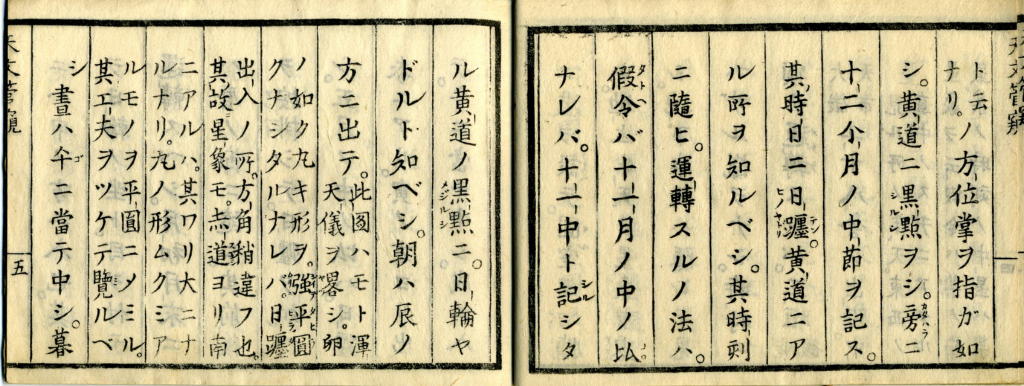 ト云
ナリ。
ノ方位掌ヲ指ガ如
シ。黄道ニ黒點ヲシ。旁ニ
十二个月ノ中節ヲ記ス。
其時日ニ日躔黄道ニア
ル所ヲ知ルベシ。其時刻
ニ隨ヒ。運轉スルノ法ハ。
假令バ十一月ノ中ノ比
ナレバ。十一中ト記シタ
ル黄道ノ黒點ニ。日輪ヤ
ドルト知ベシ。朝ハ辰ノ
方ニ出テ。
此圖ハモト渾
天儀ヲ畧シ。卵
ノ如ク丸キ形ヲ。強平圓
クナシタルナレバ。日躔
出入ノ所。方角稍違フ也。
其故星象モ。赤道ヨリ南
ニアルハ。其ワリ大ニナ
ルナリ。丸ノ形ムクミア
ルモノヲ平圓ニメミル。
其工夫ヲツケテ覽ルベ
シ
晝ハ午ニ當テ中シ。暮
天文管窺
五